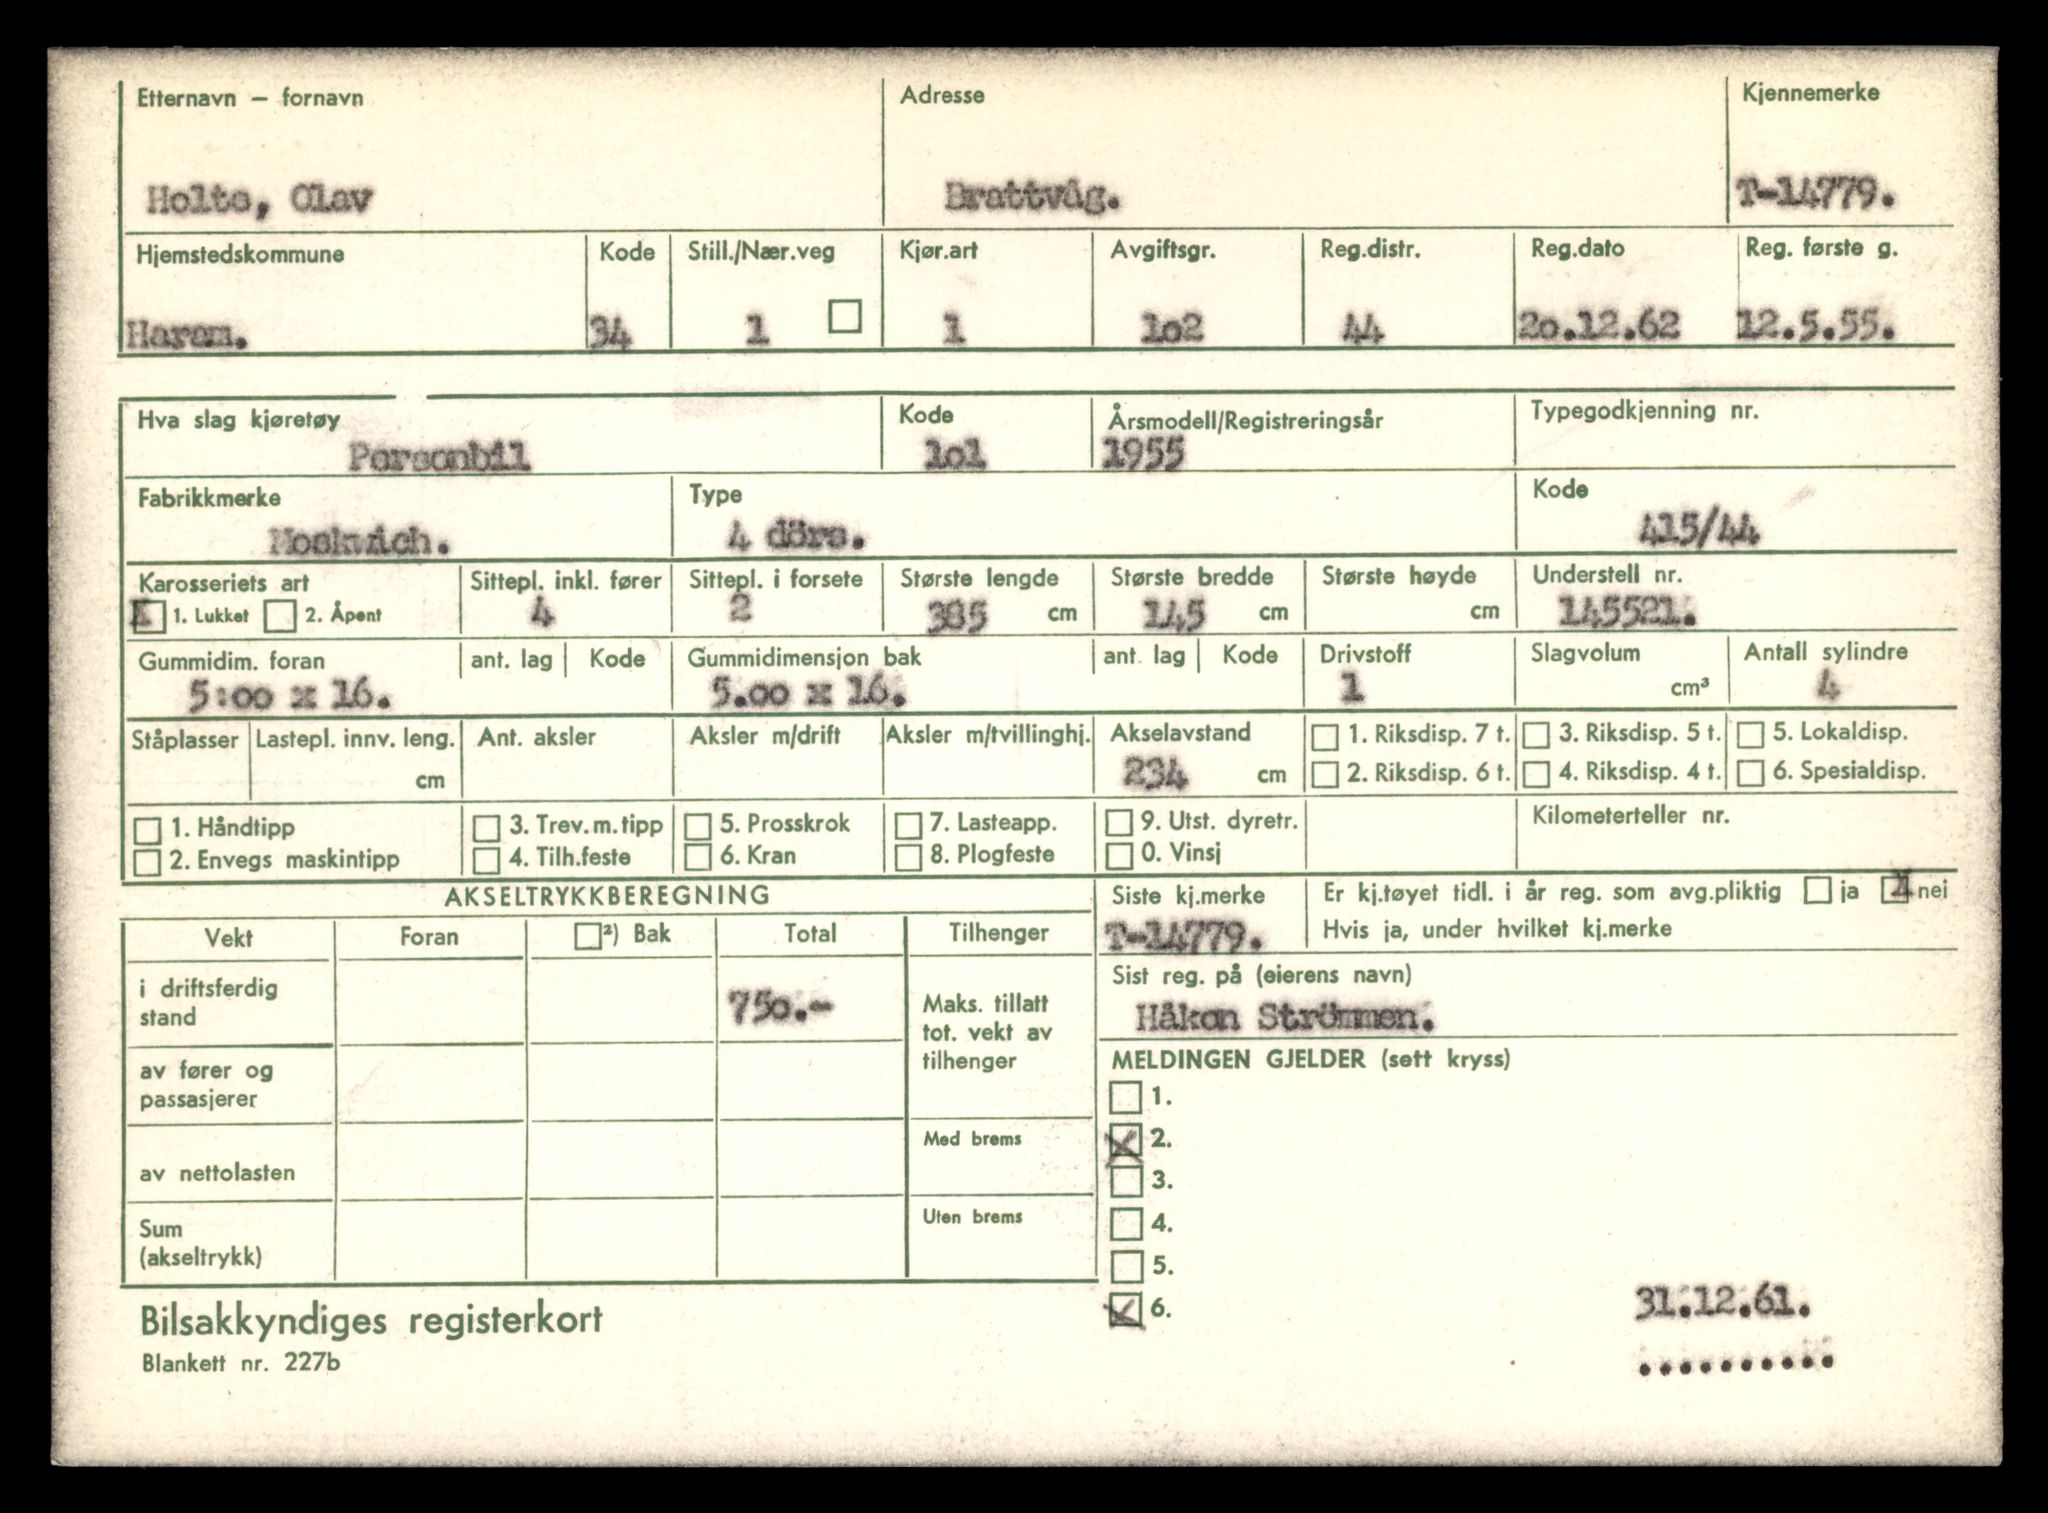 Etternavn – fornavn Adresse Kjennemerke
Holte, Olav Brattvåg. T-14779.
Hjemstedskommune Kode Still./Nær.veg Kjør.art Avgiftsgr. Reg.distr. Reg.dato Reg. første g.
Haram. 34 1 1 1o2 44 2o.12.62 12.5.55.
Hva slag kjøretøy Kode Årsmodell/Registreringsår Typegodkjenning nr.
Personbil 1o1 1955
Fabrikkmerke Type Kode
Moskvich. 4 dörs. 415/44
Karosseriets art Sittepl. inkl. fører Sittepl. i forsete Største lengde Største bredde Største høyde Understell nr.
X 1. Lukket 2. Åpent 4 2 385 cm 145 cm cm 145521.
Gummidim. foran ant. lag Kode Gummidimensjon bak ant. lag Kode Drivstoff Slagvolum Antall sylindre
5:oo x 16. 5.oo x 16. 1 cm³ 4
Ståplasser Lastepl. innv. leng. Ant. aksler Aksler m/drift Aksler m/tvillinghj. Akselavstand 1. Riksdisp. 7 t. 3. Riksdisp. 5 t. 5. Lokaldisp.
cm 234 cm 2. Riksdisp. 6 t. 4. Riksdisp. 4 t. 6. Spesialdisp.
1. Håndtipp 3. Trev.m.tipp 5. Prosskrok 7. Lasteapp. 9. Utst. dyretr. Kilometerteller nr.
2. Envegs maskintipp 4. Tilh.feste 6. Kran 8. Plogfeste 0. Vinsj
AKSELTRYKKBEREGNING Siste kj.merke Er kj.tøyet tidl. i år reg. som avg.pliktig ja X nei
Vekt Foran ²) Bak Total Tilhenger T-14779. Hvis ja, under hvilket kj.merke
i driftsferdig stand 750.- Maks. tillatt tot. vekt av tilhenger
Sist reg. på (eierens navn)
Håkon Strömmen.
av fører og passasjerer
MELDINGEN GJELDER (sett kryss)
1.
Med brems X 2.
av nettolasten 3.
Uten brems 4.
Sum (akseltrykk) 5.
X 6. 31.12.61.
Bilsakkyndiges registerkort
Blankett nr. 227b ..........